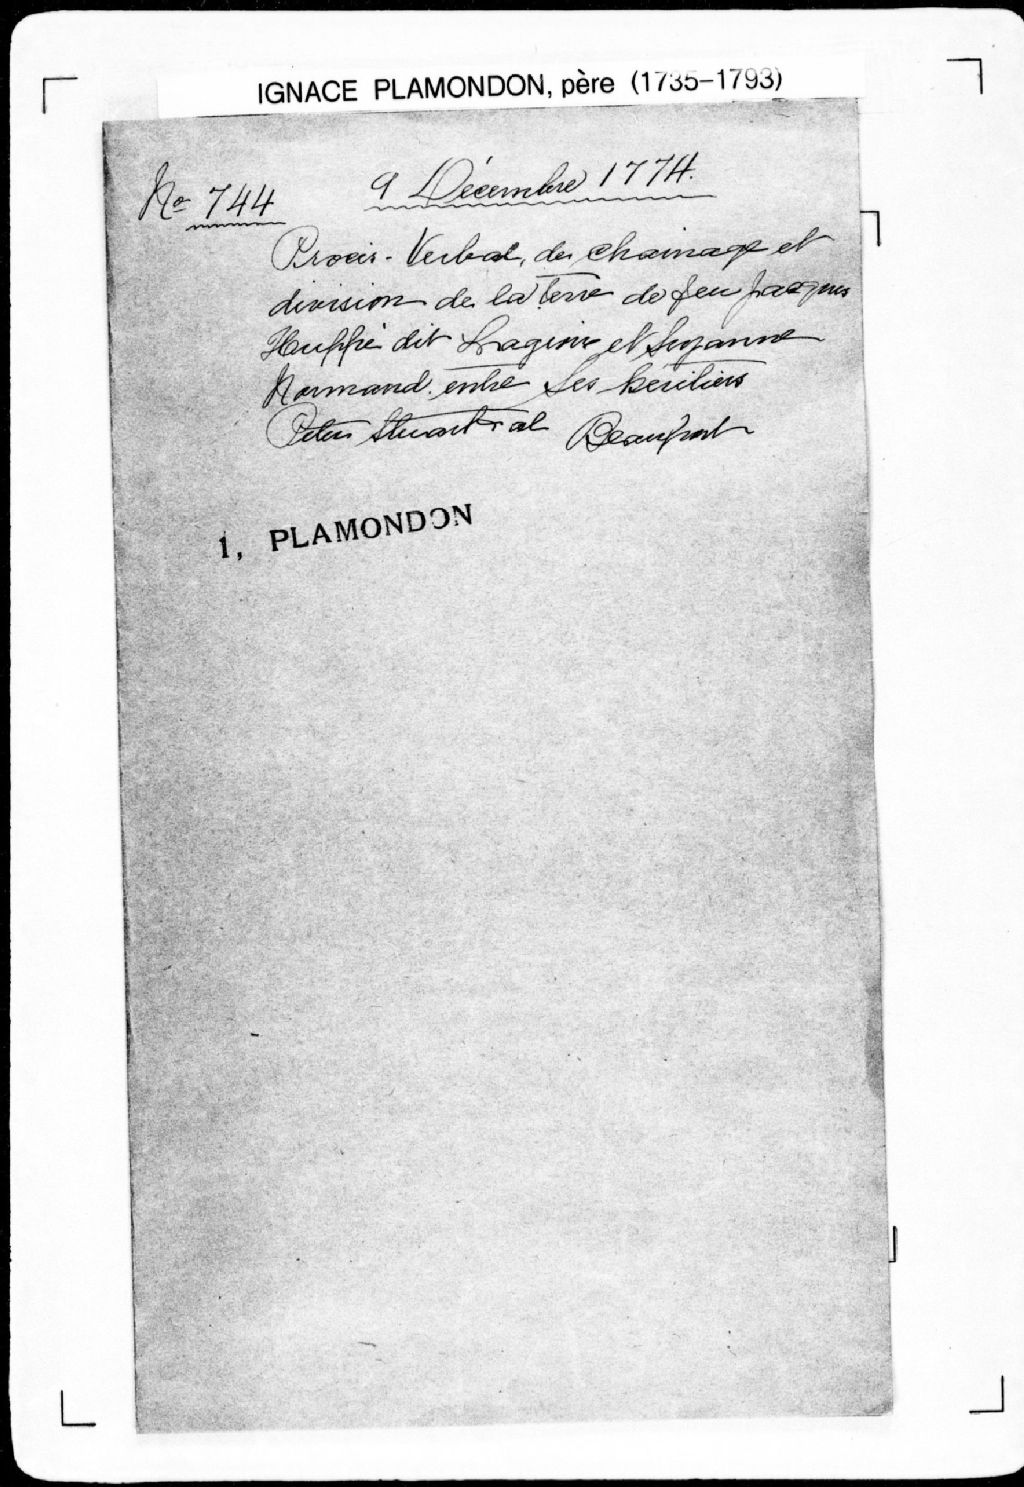 IGNACE PLAMONDON, père (1735-1793)
No 744
9 Décembre 1774.
Procès-Verbal, de chainage et
division de la terre de feu Jacques
Huppé dit Lagroix et Suzanne
Normand entre Ses héritiers
Peter Stuart et al Beauport
I, PLAMONDON